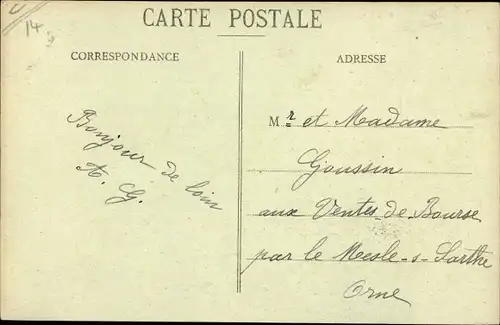 14
CARTE POSTALE
CORRESPONDANCE
ADRESSE
Bonjour de loin
A. G.
Mr et Madame
Goussin
aux Ventes-de-Bourse
par le Mesle-s-Sarthe
Orne